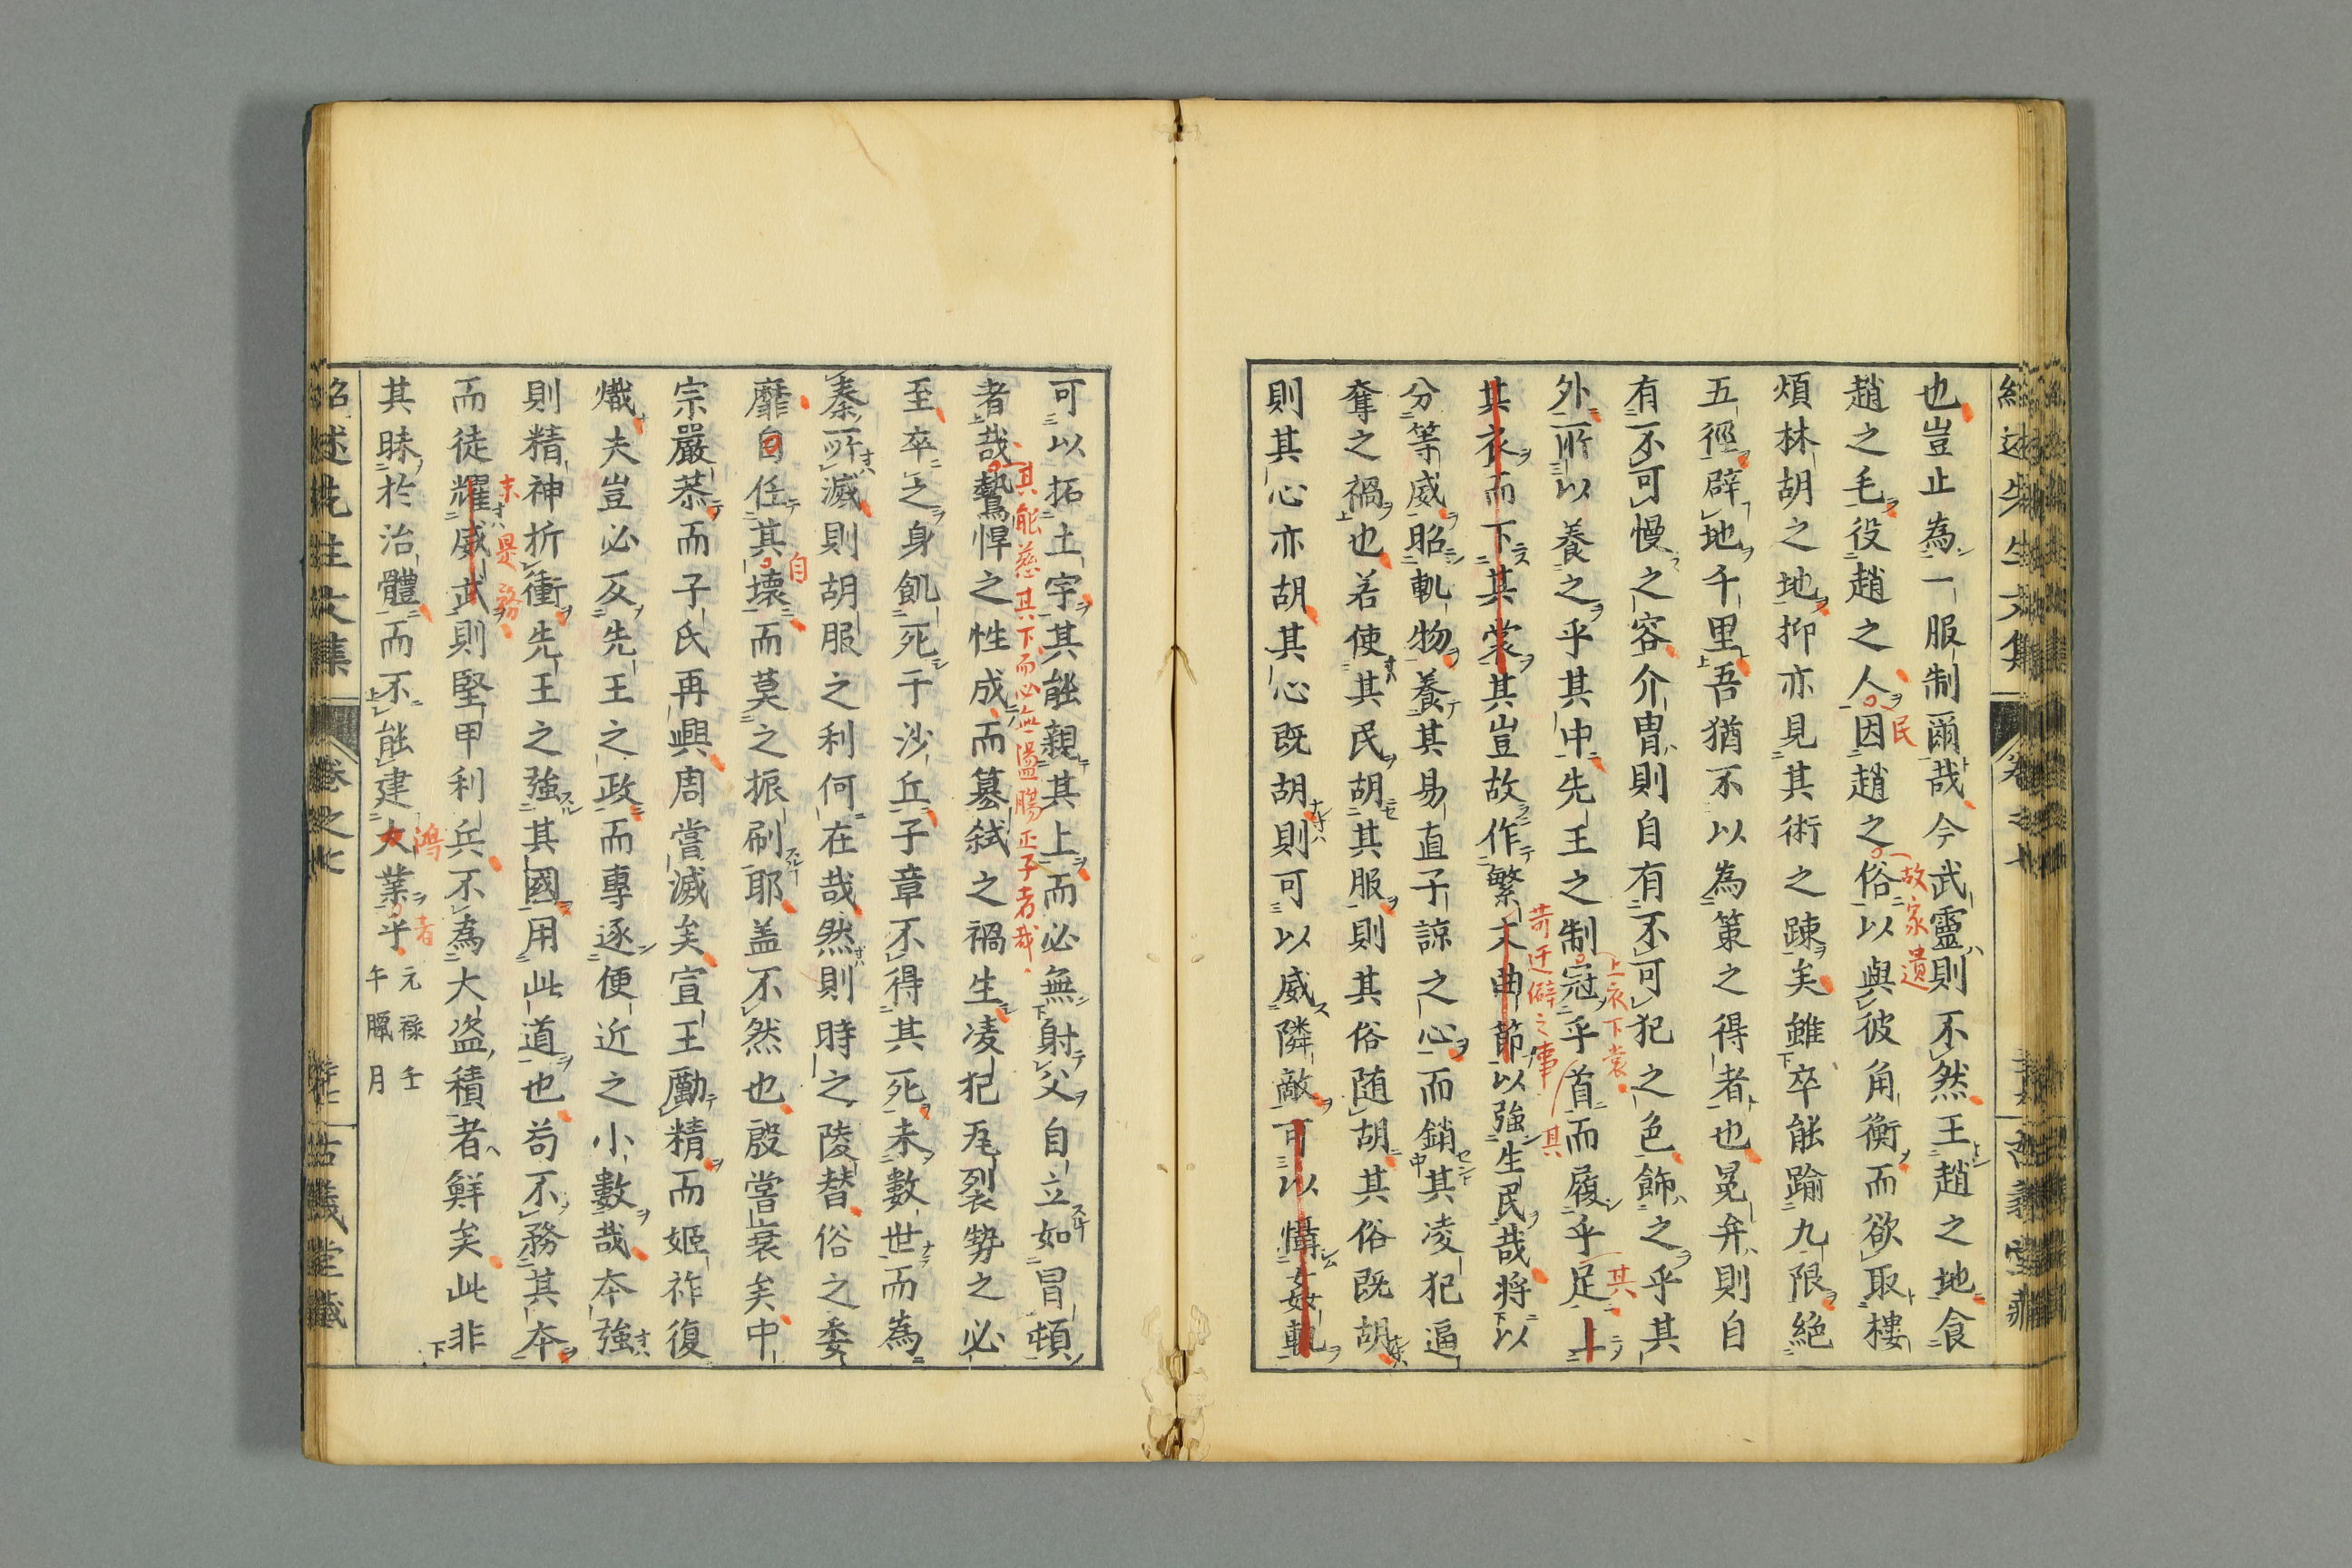 也豈止為一服制爾哉今武靈則不然王趙之地食
趙之毛役趙之人因趙之俗以與彼角衡而欲取樓
民
故家遺
煩林胡之地抑亦見其術之踈矣雖卒能踰九限絕
五徑辟地千里吾猶不以為策之得者也冕弁則自
有不可慢之容介冑則自有不可犯之色飾之乎其
外所以養之乎其中先王之制冠乎首而履乎足上
上衣下裳
其
其
其衣而下其裳其豈故作繁文曲節以強生民哉將以
苛迂僻之事
分等威昭軌物養其易直子諒之心而銷其凌犯逼
奪之禍也若使其民胡其服則其俗随胡其俗既胡
則其心亦胡其心既胡則可以威隣敵可以懾姦軌
可以拓土宇其能親其上而必無射父自立如冒頓
者哉鷙悍之性成而簒弑之禍生凌犯瓦裂勢之必
其能慈其下而必無
至卒之身飢死于沙丘子章不得其死未數世而為
秦所滅則胡服之利何在哉然則時之陵替俗之委
靡自任其壞而莫之振刷耶盖不然也殷嘗衰矣中
自
宗嚴恭而子氏再興周嘗滅矣宣王勵精而姬祚復
熾夫豈必反先王之政而專逐便近之小數哉本強
則精神折衝先王之強其國用此道也苟不務其本
而徒耀威武則堅甲利兵不為大盗積者鮮矣此非
末是務
其昧於治體而不能建大業乎
鴻
者
元禄壬
午臘月
紹述先生文集
卷之七
古義堂藏